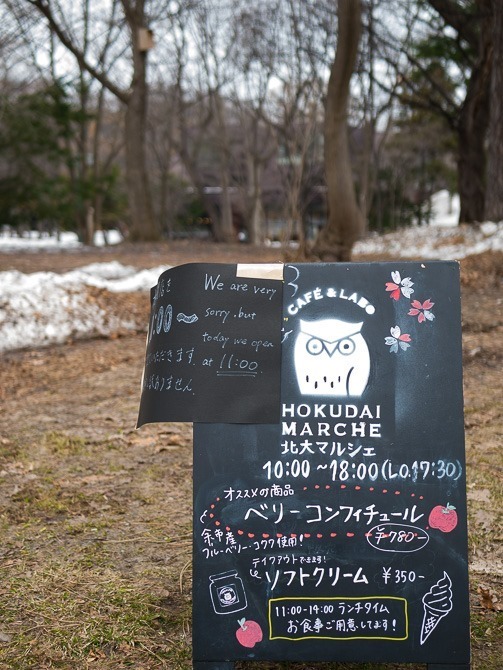 We are very
sorry, but
today we open
at 11:00
:00
ただきます.
ありません.
CAFÉ & LABO
HOKUDAI
MARCHE
北大マルシェ
10:00 ~ 18:00 (L.O.17:30)
オススメの商品
ベリーコンフィチュール
¥780-
余市産
ブルーベリー・コクワ使用!
テイクアウトできます!
ソフトクリーム ¥350-
11:00-14:00 ランチタイム
お食事ご用意してます!